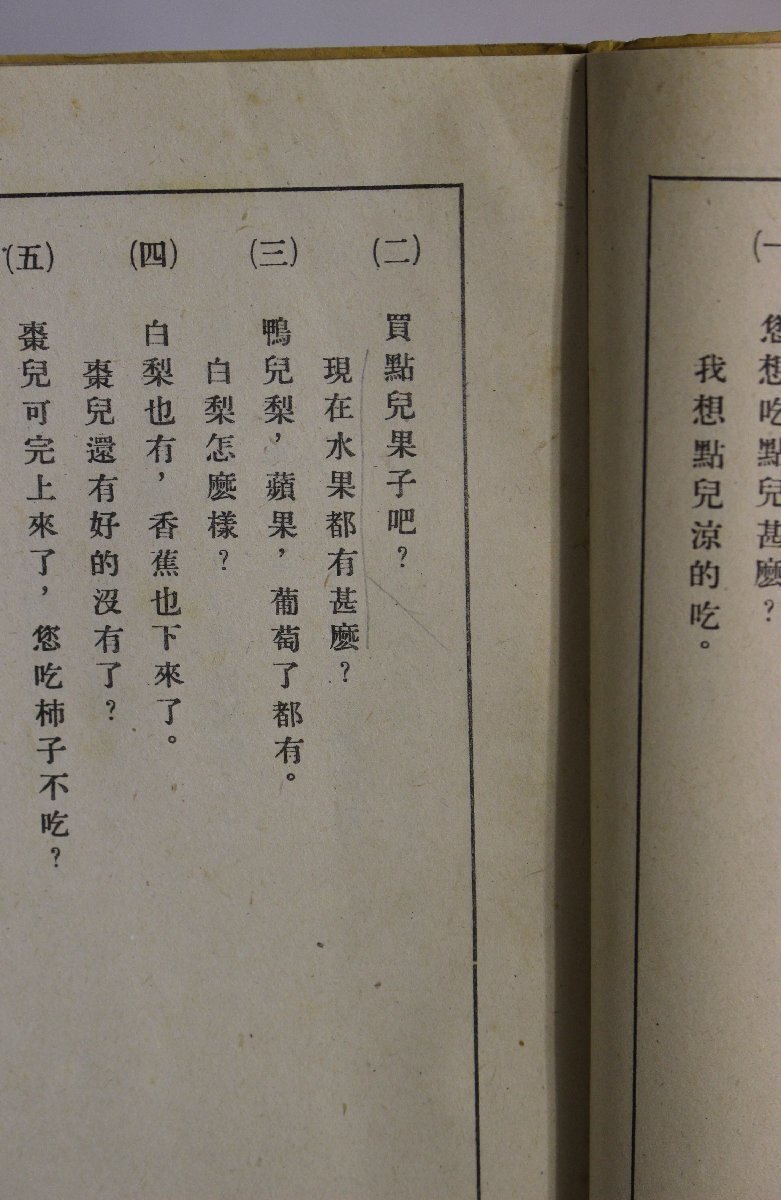 (一) 您想吃點兒甚麼?
我想點兒涼的吃。
(二) 買點兒果子吧?
現在水果都有甚麼?
(三) 鴨兒梨,蘋果,葡萄了都有。
白梨怎麼樣?
(四) 白梨也有,香蕉也下來了。
棗兒還有好的沒有了?
(五) 棗兒可完上來了,您吃柿子不吃?